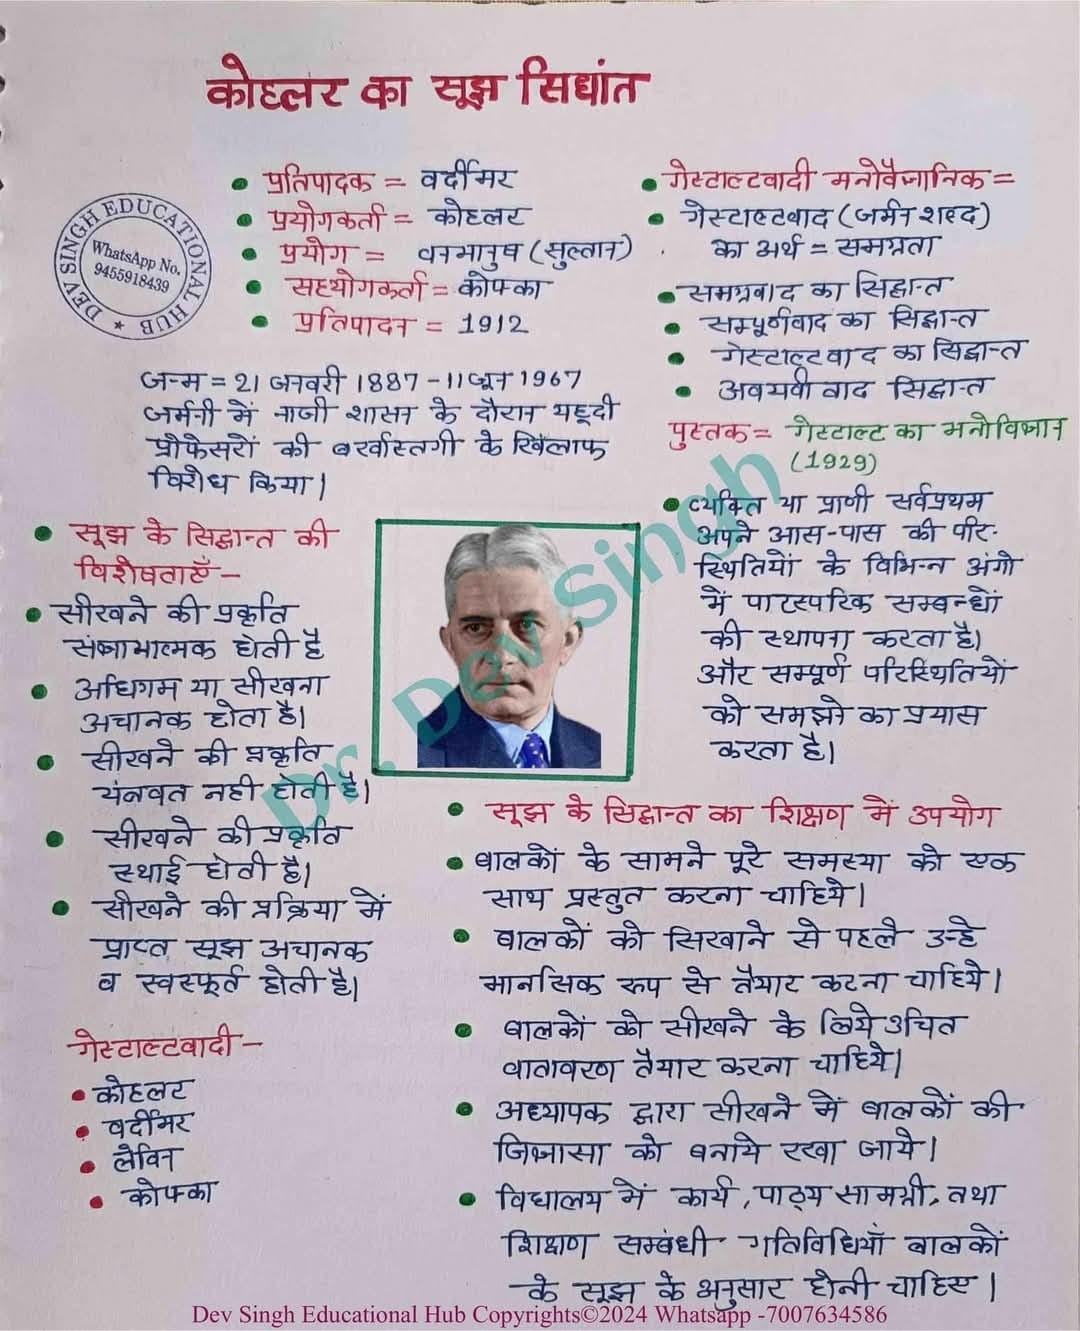 कोहलर का सूझ सिद्यांत
प्रतिपादक = वर्दीमर
प्रयोगकर्ता = कोहलर
प्रयोग = वनमानुष (सुल्तान)
सहयोगकर्ता = कोफ्का
प्रतिपादन = 1912
गेस्टाल्टवादी मनोवैज्ञानिक =
गेस्टाल्टवाद (जर्मन शब्द)
का अर्थ = समग्रता
समग्रवाद का सिद्धान्त
सम्पूर्णवाद का सिद्धान्त
गेस्टाल्टवाद का सिद्धान्त
अवयवी वाद सिद्धान्त
पुस्तक = गेस्टाल्ट का मनोविज्ञान
(1929)
DEV SINGH EDUCATIONAL HUB
WhatsApp No.
9455918439
जन्म = 21 जनवरी 1887 - 11 जून 1967
जर्मनी में नाजी शासन के दौरान यहूदी
प्रोफेसरों की बर्खास्तगी के खिलाफ
विरोध किया।
व्यक्ति या प्राणी सर्वप्रथम
अपने आस-पास की परि-
स्थितियों के विभिन्न अंगो
में पारस्परिक सम्बन्धों
की स्थापना करता है।
और सम्पूर्ण परिस्थितियों
को समझने का प्रयास
करता है।
सूझ के सिद्धान्त की
विशेषताएँ -
सीखने की प्रकृति
संज्ञानात्मक होती है
अधिगम या सीखना
अचानक होता है।
सीखने की प्रकृति
यंत्रवत नही होती है।
सीखने की प्रकृति
स्थाई होती है।
सीखने की प्रक्रिया में
प्राप्त सूझ अचानक
व स्वस्फूर्त होती है।
गेस्टाल्टवादी -
कोहलर
वर्दीमर
लेविन
कोफ्का
Dr. Dev Singh
सूझ के सिद्धान्त का शिक्षण में उपयोग
बालकों के सामने पूरे समस्या को एक
साथ प्रस्तुत करना चाहिये।
बालकों को सिखाने से पहले उन्हे
मानसिक रूप से तैयार करना चाहिये।
बालकों को सीखने के लिये उचित
वातावरण तैयार करना चाहिये।
अध्यापक द्वारा सीखने में बालकों की
जिज्ञासा को बनाये रखा जाये।
विद्यालय में कार्य, पाठ्य सामग्री, तथा
शिक्षण सम्बंधी गतिविधियाँ बालकों
के सूझ के अनुसार होनी चाहिए।
Dev Singh Educational Hub Copyrights©2024 Whatsapp -7007634586